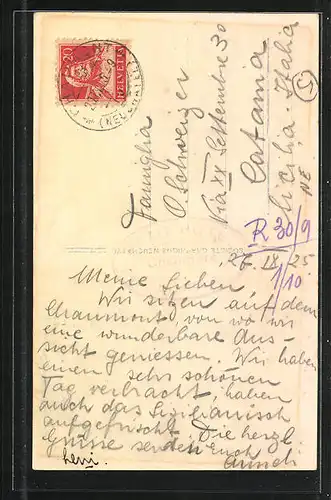 20
HELVETIA
(NEUCHATEL)
Famiglia
O. Schweizer
Via XX Settembre 30
Catania
Sicilia - Italia
NE
5
R 30/9
1/10
26. IX. 25
Meine Lieben,
Wir sitzen auf dem
Chaumont, von wo wir
eine wunderbare Aus-
sicht geniessen. Wir haben
einen sehr schönen
Tag verbracht, haben
auch das Sizilianisch
aufgefrischt. Die herzl.
Grüsse senden Euch